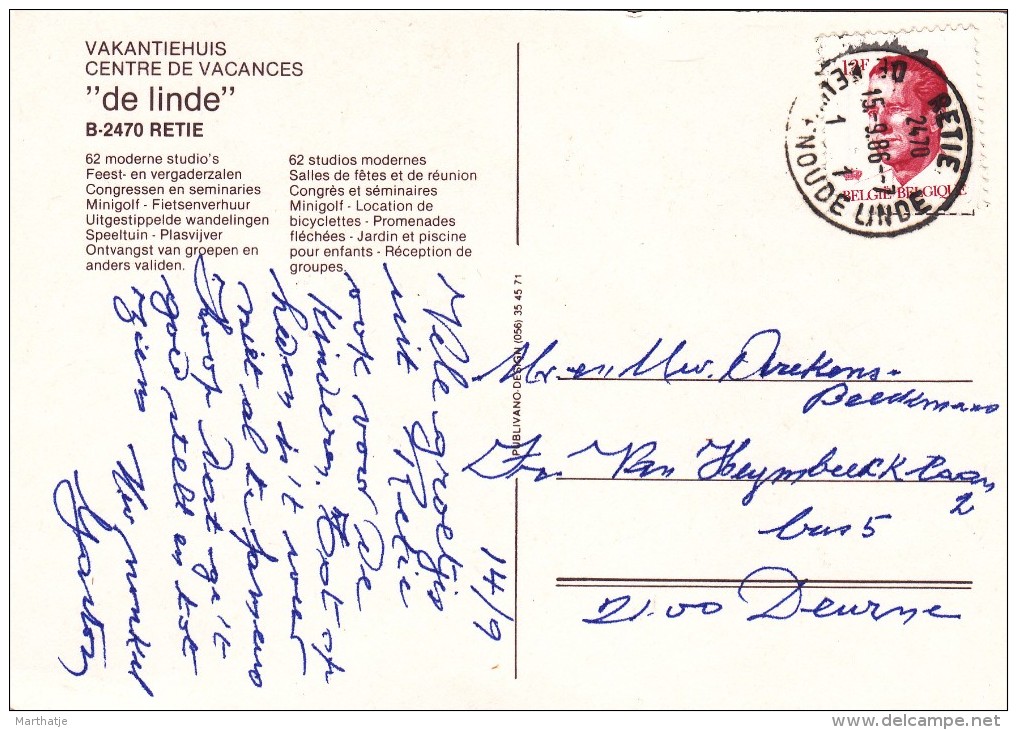 VAKANTIEHUIS
CENTRE DE VACANCES
"de linde"
B-2470 RETIE
62 moderne studio's
Feest- en vergaderzalen
Congressen en seminaries
Minigolf - Fietsenverhuur
Uitgestippelde wandelingen
Speeltuin - Plasvijver
Ontvangst van groepen en
anders validen.
62 studios modernes
Salles de fêtes et de réunion
Congrès et séminaires
Minigolf - Location de
bicyclettes - Promenades
fléchées - Jardin et piscine
pour enfants - Réception de
groupes.
14/9
Vele groetjes
uit Retie
ook voor De
Kinderen. Tot op
heden is 't weer
niet al te fameus
Ik hoop dat ge 't
goed stelt en tot
ziens Uw nonkel
PUBLIVANO-DESIGN (056) 35 45 71
12F
BELGIË-BELGIQUE
RETIE
2470
15-9.86-7
1 1
OUDE LINDE
Mr. en Mw.
Beeckmans
Van Heymbeeck laan
2
bus 5
2100 Deurne
Marthatje
www.delcampe.net